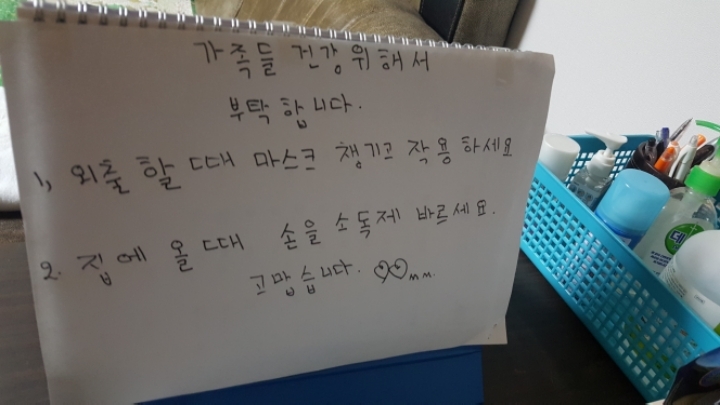 가족들 건강 위해서
부탁합니다.
1, 외출할 때 마스크 챙기고 작용하세요
2. 집에 올 때 손을 소독제 바르세요.
고맙습니다. ♡♡ m m.
데톨